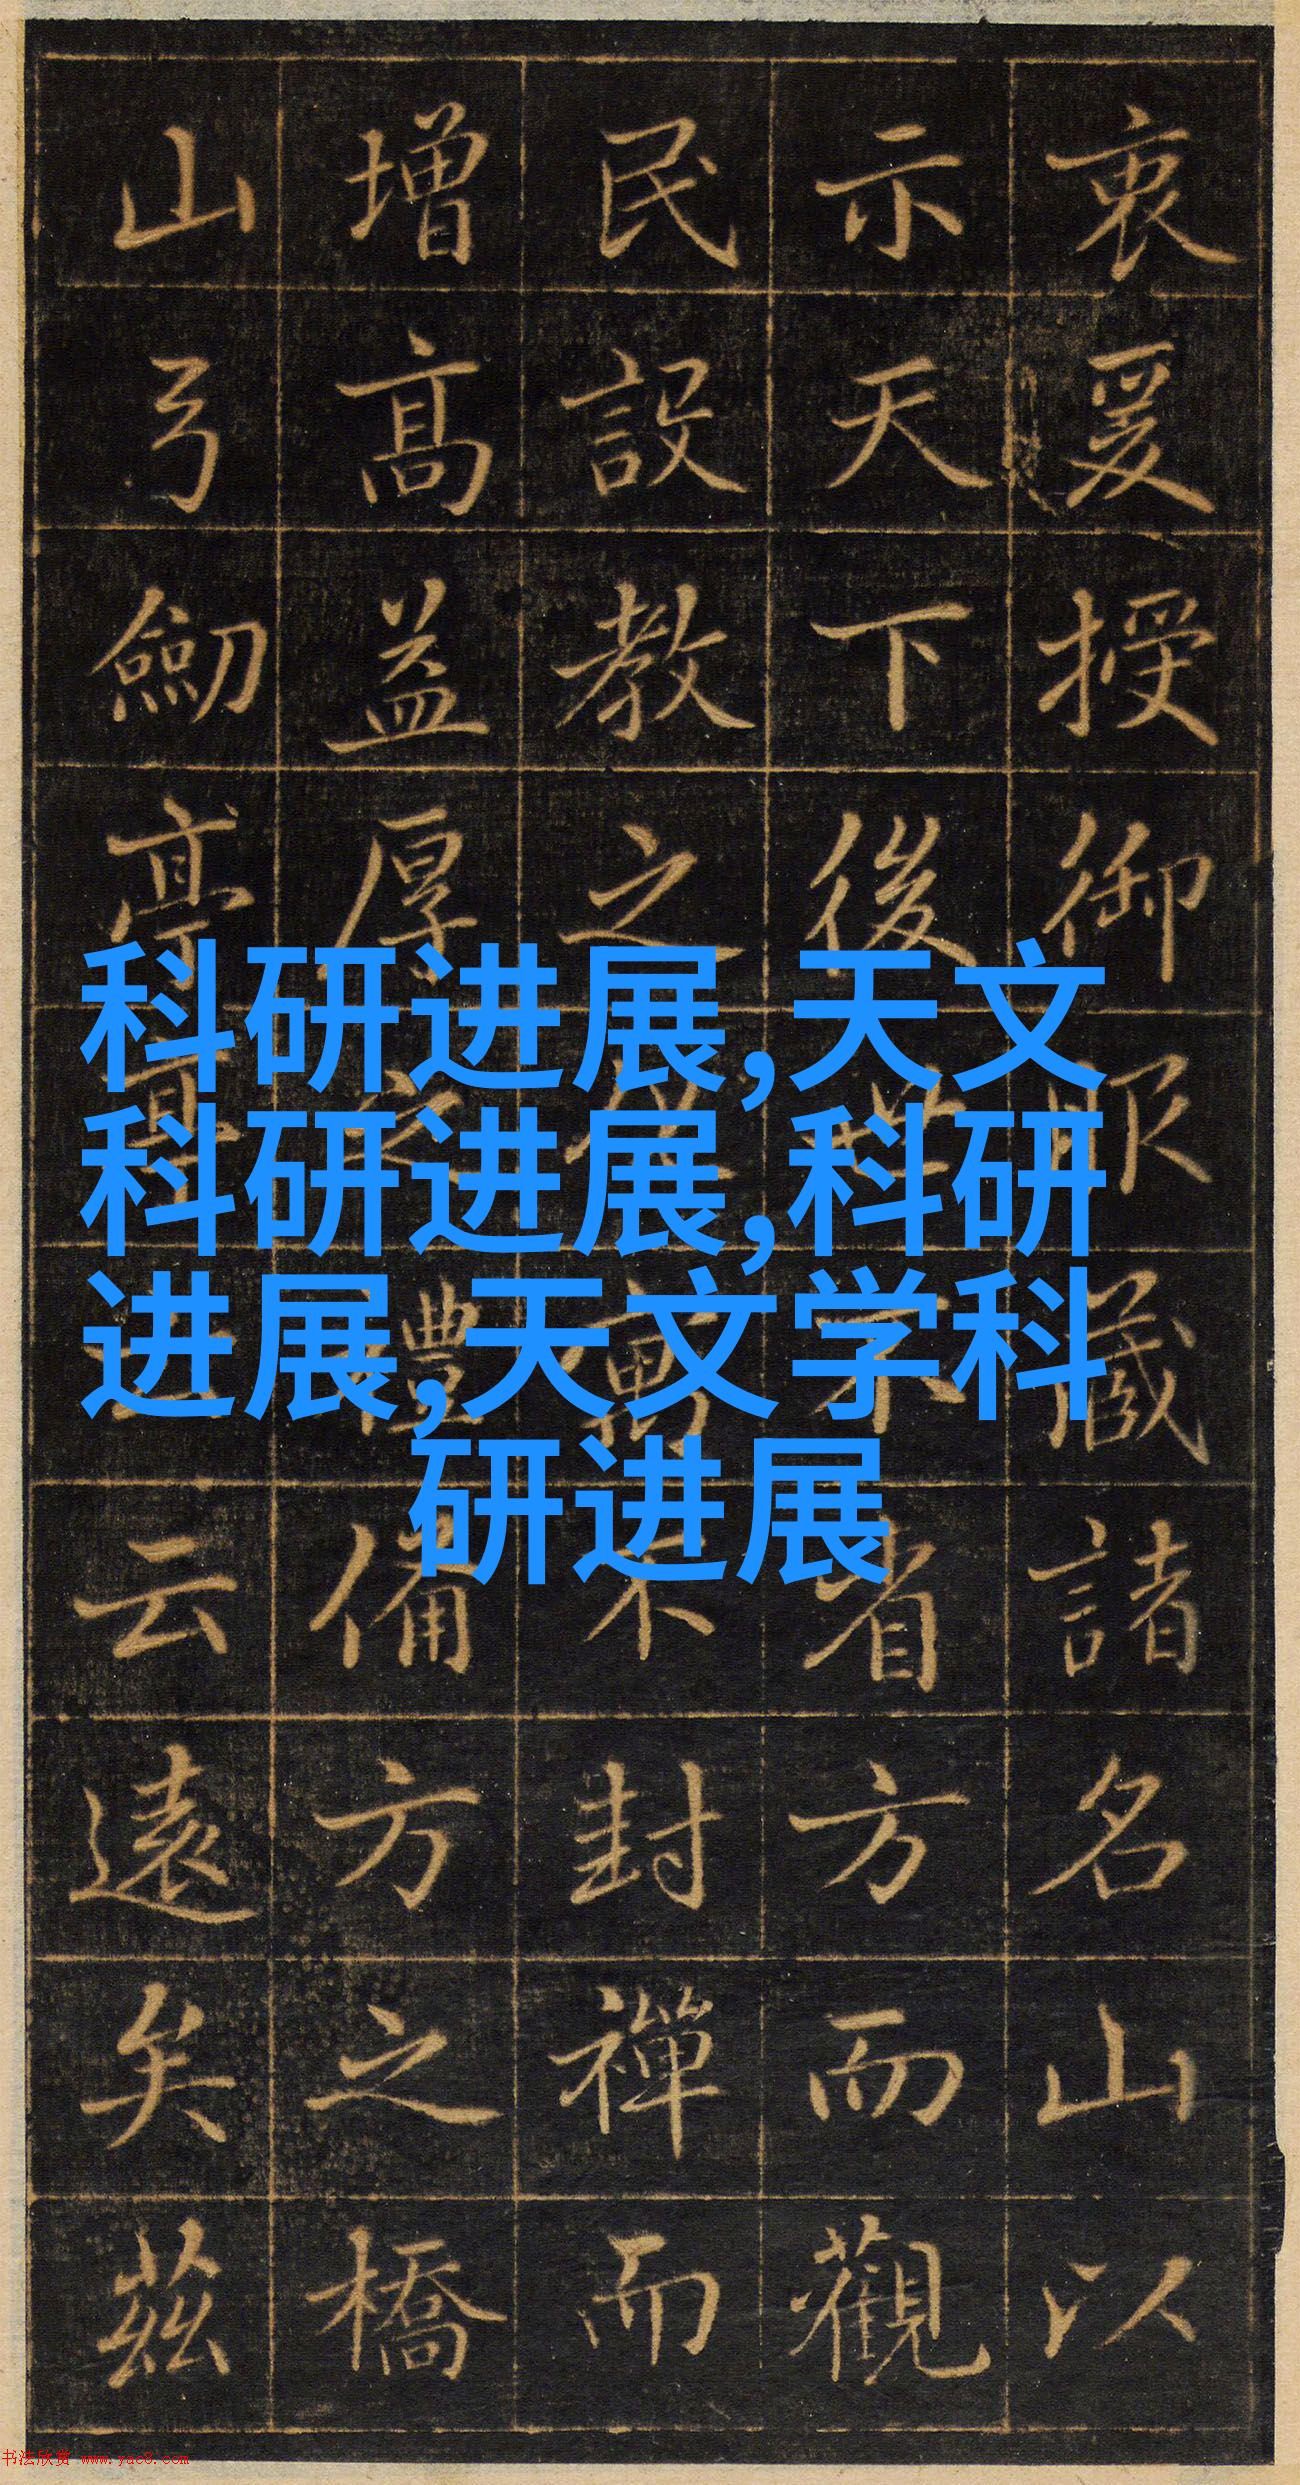 衷爰授御服藏諸名山以
示天下後世不省方而觀
民設教之不封禪而
增高益厚之禮備方之橋
山弓劒亭亭云遠矣茲
科研进展,天文
科研进展,科研
进展,天文学科
研进展
书法欣赏 www.yac8.com